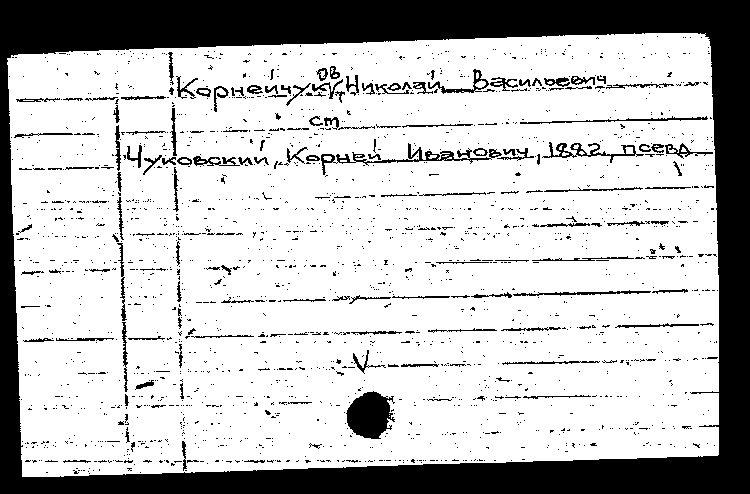 Корнейчуков, Николай Васильевич
см
Чуковский, Корней Иванович, 1882, псевд